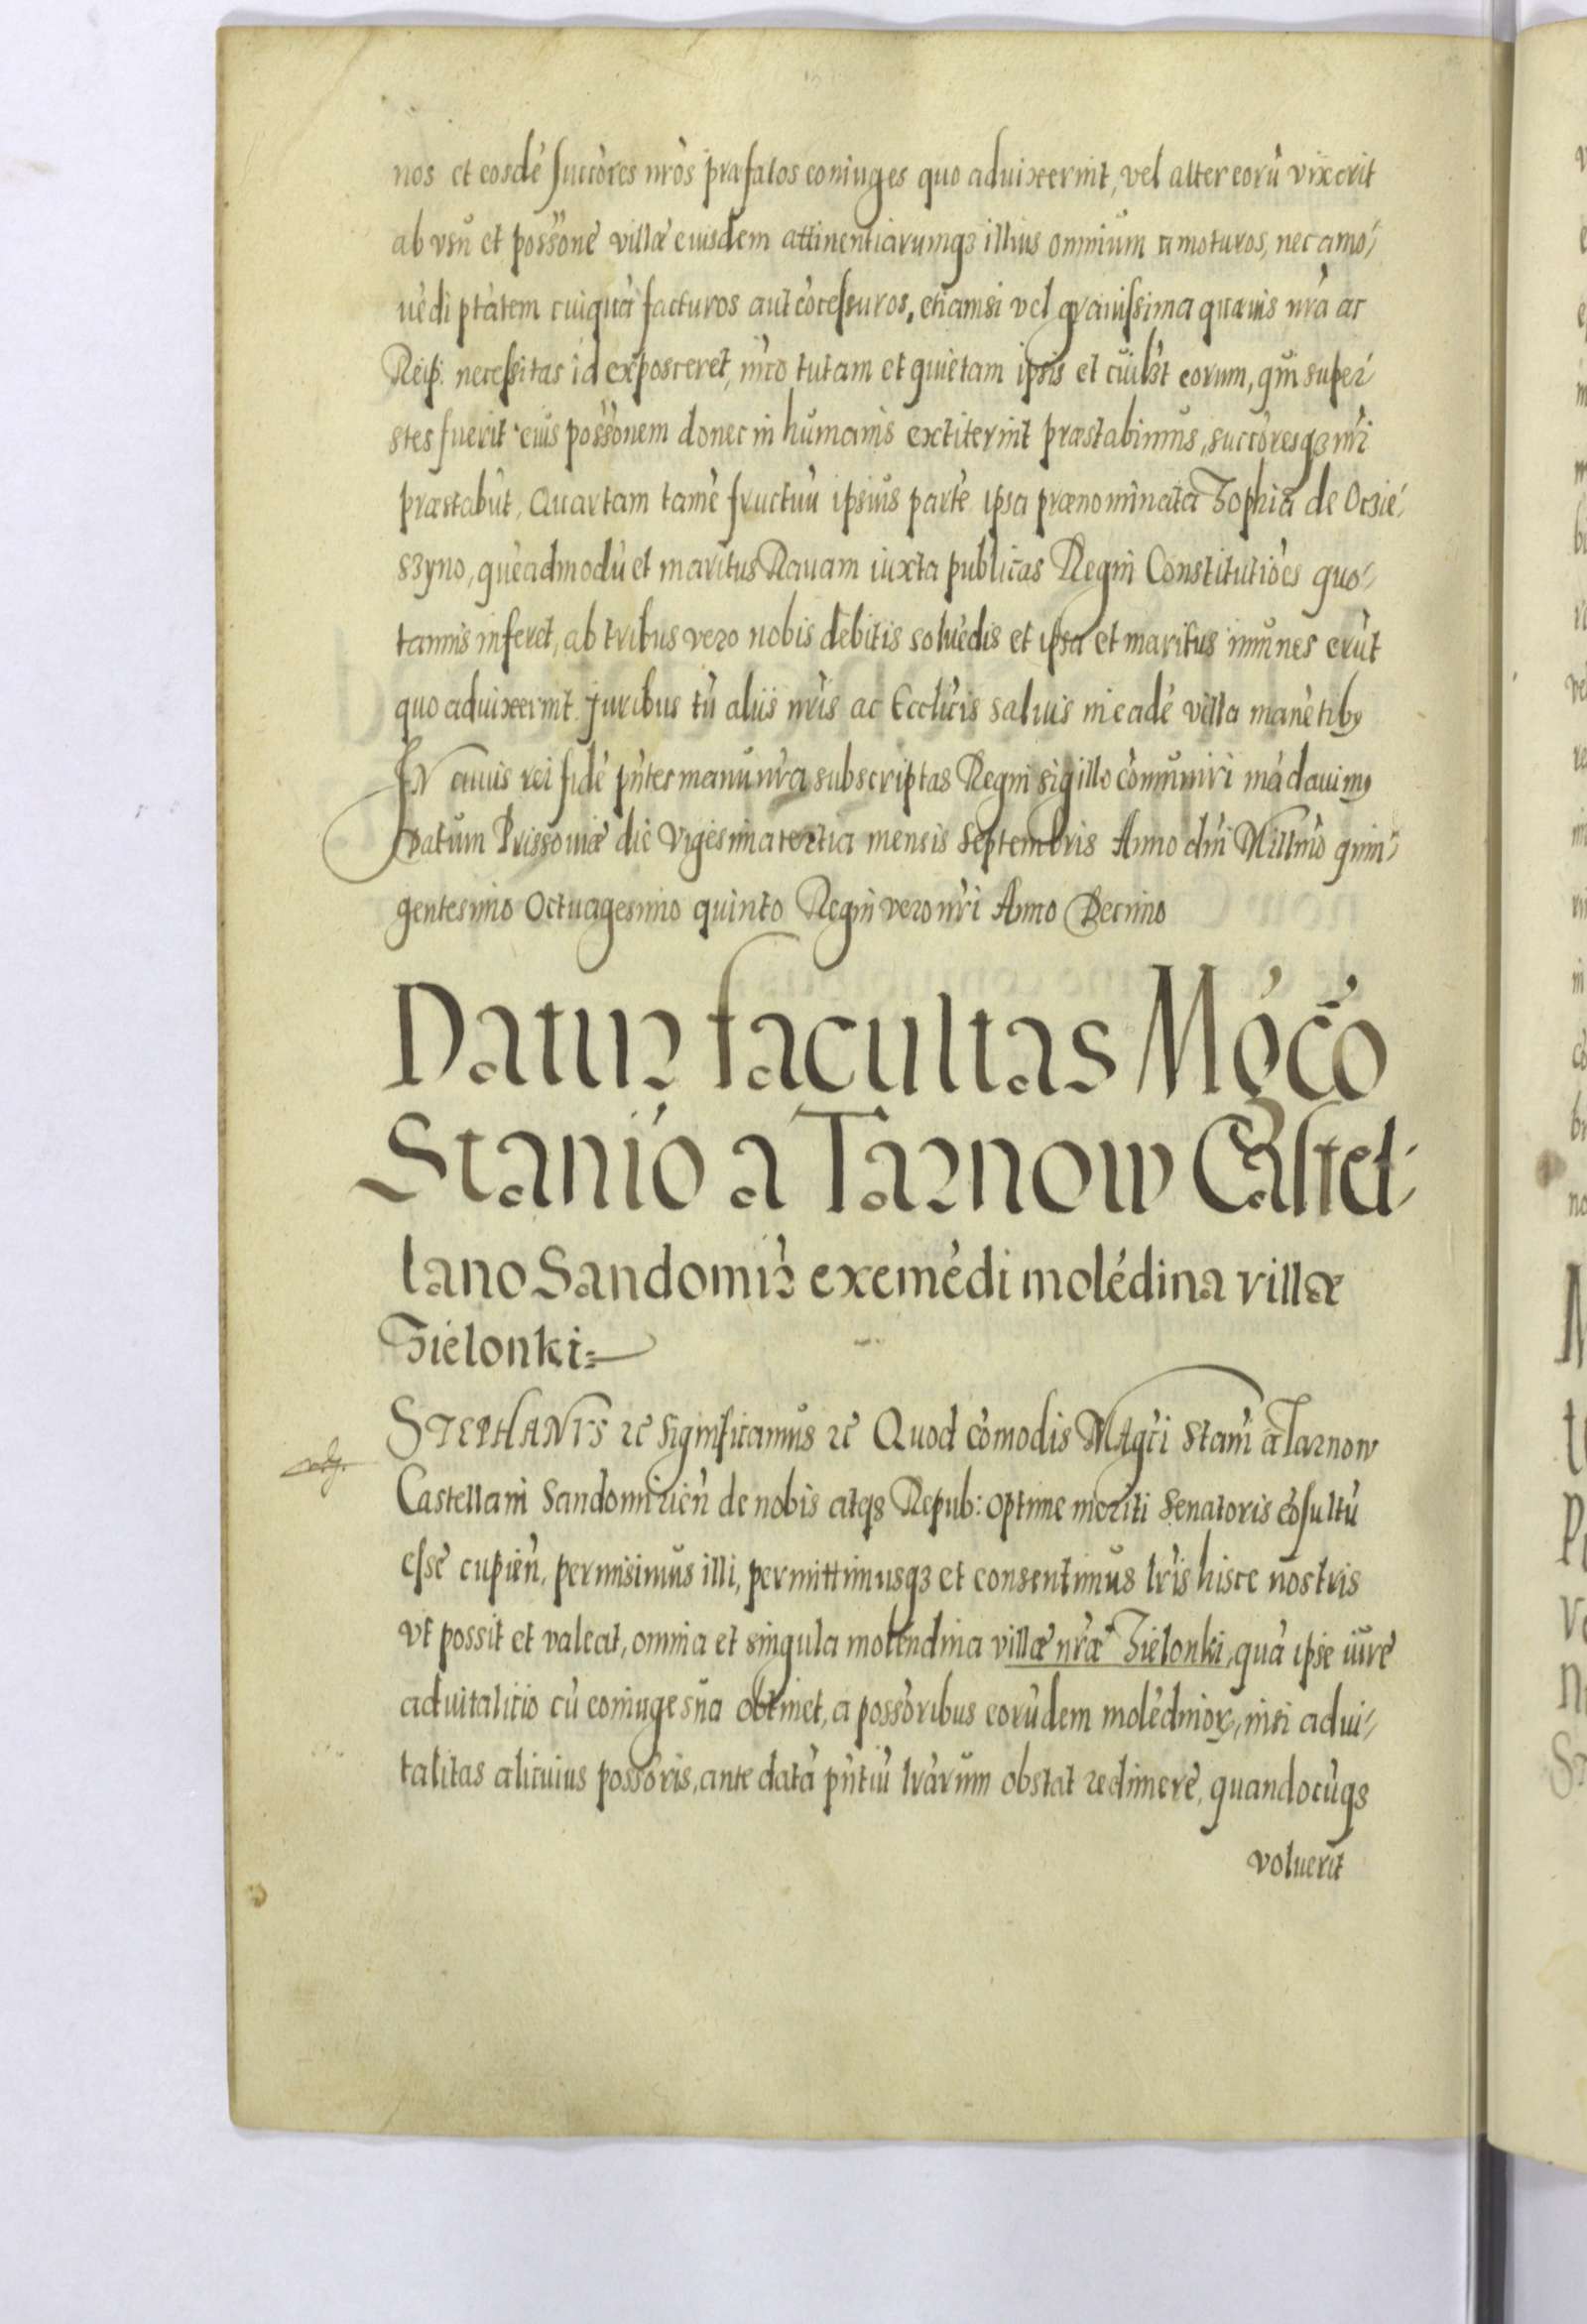 nos et eosdē succōres nrōs præfatos coniuges quo aduixerint, vel alter eorū vixerit
ab vsu et possōne villæ eiusdem attinentiarumqȝ illius omnium amoturos, nec amo-
uēdi ptātem cuiquā facturos aut cōcessuros, etiamsi vel grauissima quæuis nrā ac
Reip: necessitas id exposceret, imo tutam et quietam ipsis et cuilȝt eorum, qui super-
stes fuerit eius possōnem donec in humanis extiterint præstabimus, succōresqȝ nrī
præstabūt, Quartam tamē fructuū ipsius partē ipsa prænominata Zophia de Ocsie-
szyno, quēadmodū et maritus Rauam iuxta publicas Regni Constitutiōes quo-
tannis inferet, ab tribus vero nobis debitis soluēdis et ipsa et maritus imunes erūt
quo aduixerint. Juribus tn̄ aliis nrīs ac Ecclīcis saluis in eadē villa manētibꝰ
IN cuius rei fidē pn̄tes manu nrā subscriptas Regni sigillo cōmuniri mādauimꝰ
Datum Prissouiæ die Vigesima tertia mensis Septembris Anno dnī Millmō quin-
gentesimo Octuagesimo quinto Regni vero nrī Anno Decimo
Datur facultas Mgcō
Stanīo a Tarnow Castel-
lano Sandomir̄ exemēdi molēdina villæ
Zielonki
STEPHANVS etc Significamus etc Quod cōmodis Magcī Stanī a Tarnow
Castellani Sandomirien̄ de nobis atqȝ Repub: optime meriti Senatoris cōsultū
esse cupien̄, permisimus illi, permittimusqȝ et consentimus lrīs hisce nostris
vt possit et valeat, omnia et singula molendina villæ nrǣ Zielonki, quā ipse iure
aduitalitio cū coniuge sua obtinet, a possōribus eorūdem molēdinorꝝ, nisi adui-
talitas alicuius possōris, ante datā pn̄tiū lrārum obstat redimere, quandocūqȝ
voluerit